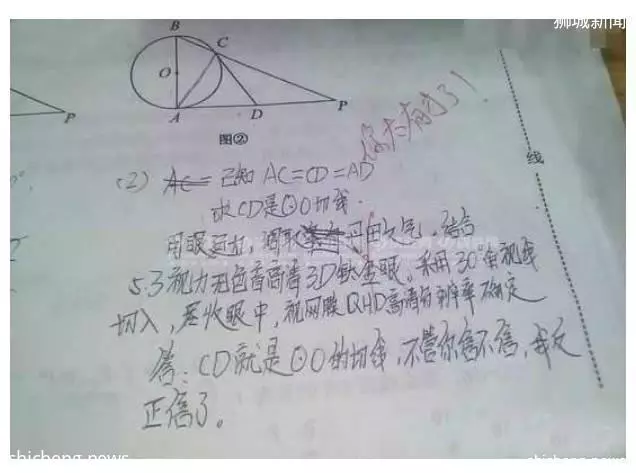 狮城新闻
B
C
O
A
D
P
P
图②
你太有才了!
线
(2) AC= 已知 AC=CD=AD
求CD是⊙O切线.
用眼运功,调取丹田之气,结合
5.3视力和色香高清3D钛金眼,采用30°角视线
切入,尽收眼中,视网膜QHD高清分辨率确定
答:CD就是⊙O的切线,不管你信不信,我反
正信了。
shicheng.news
shicheng.news